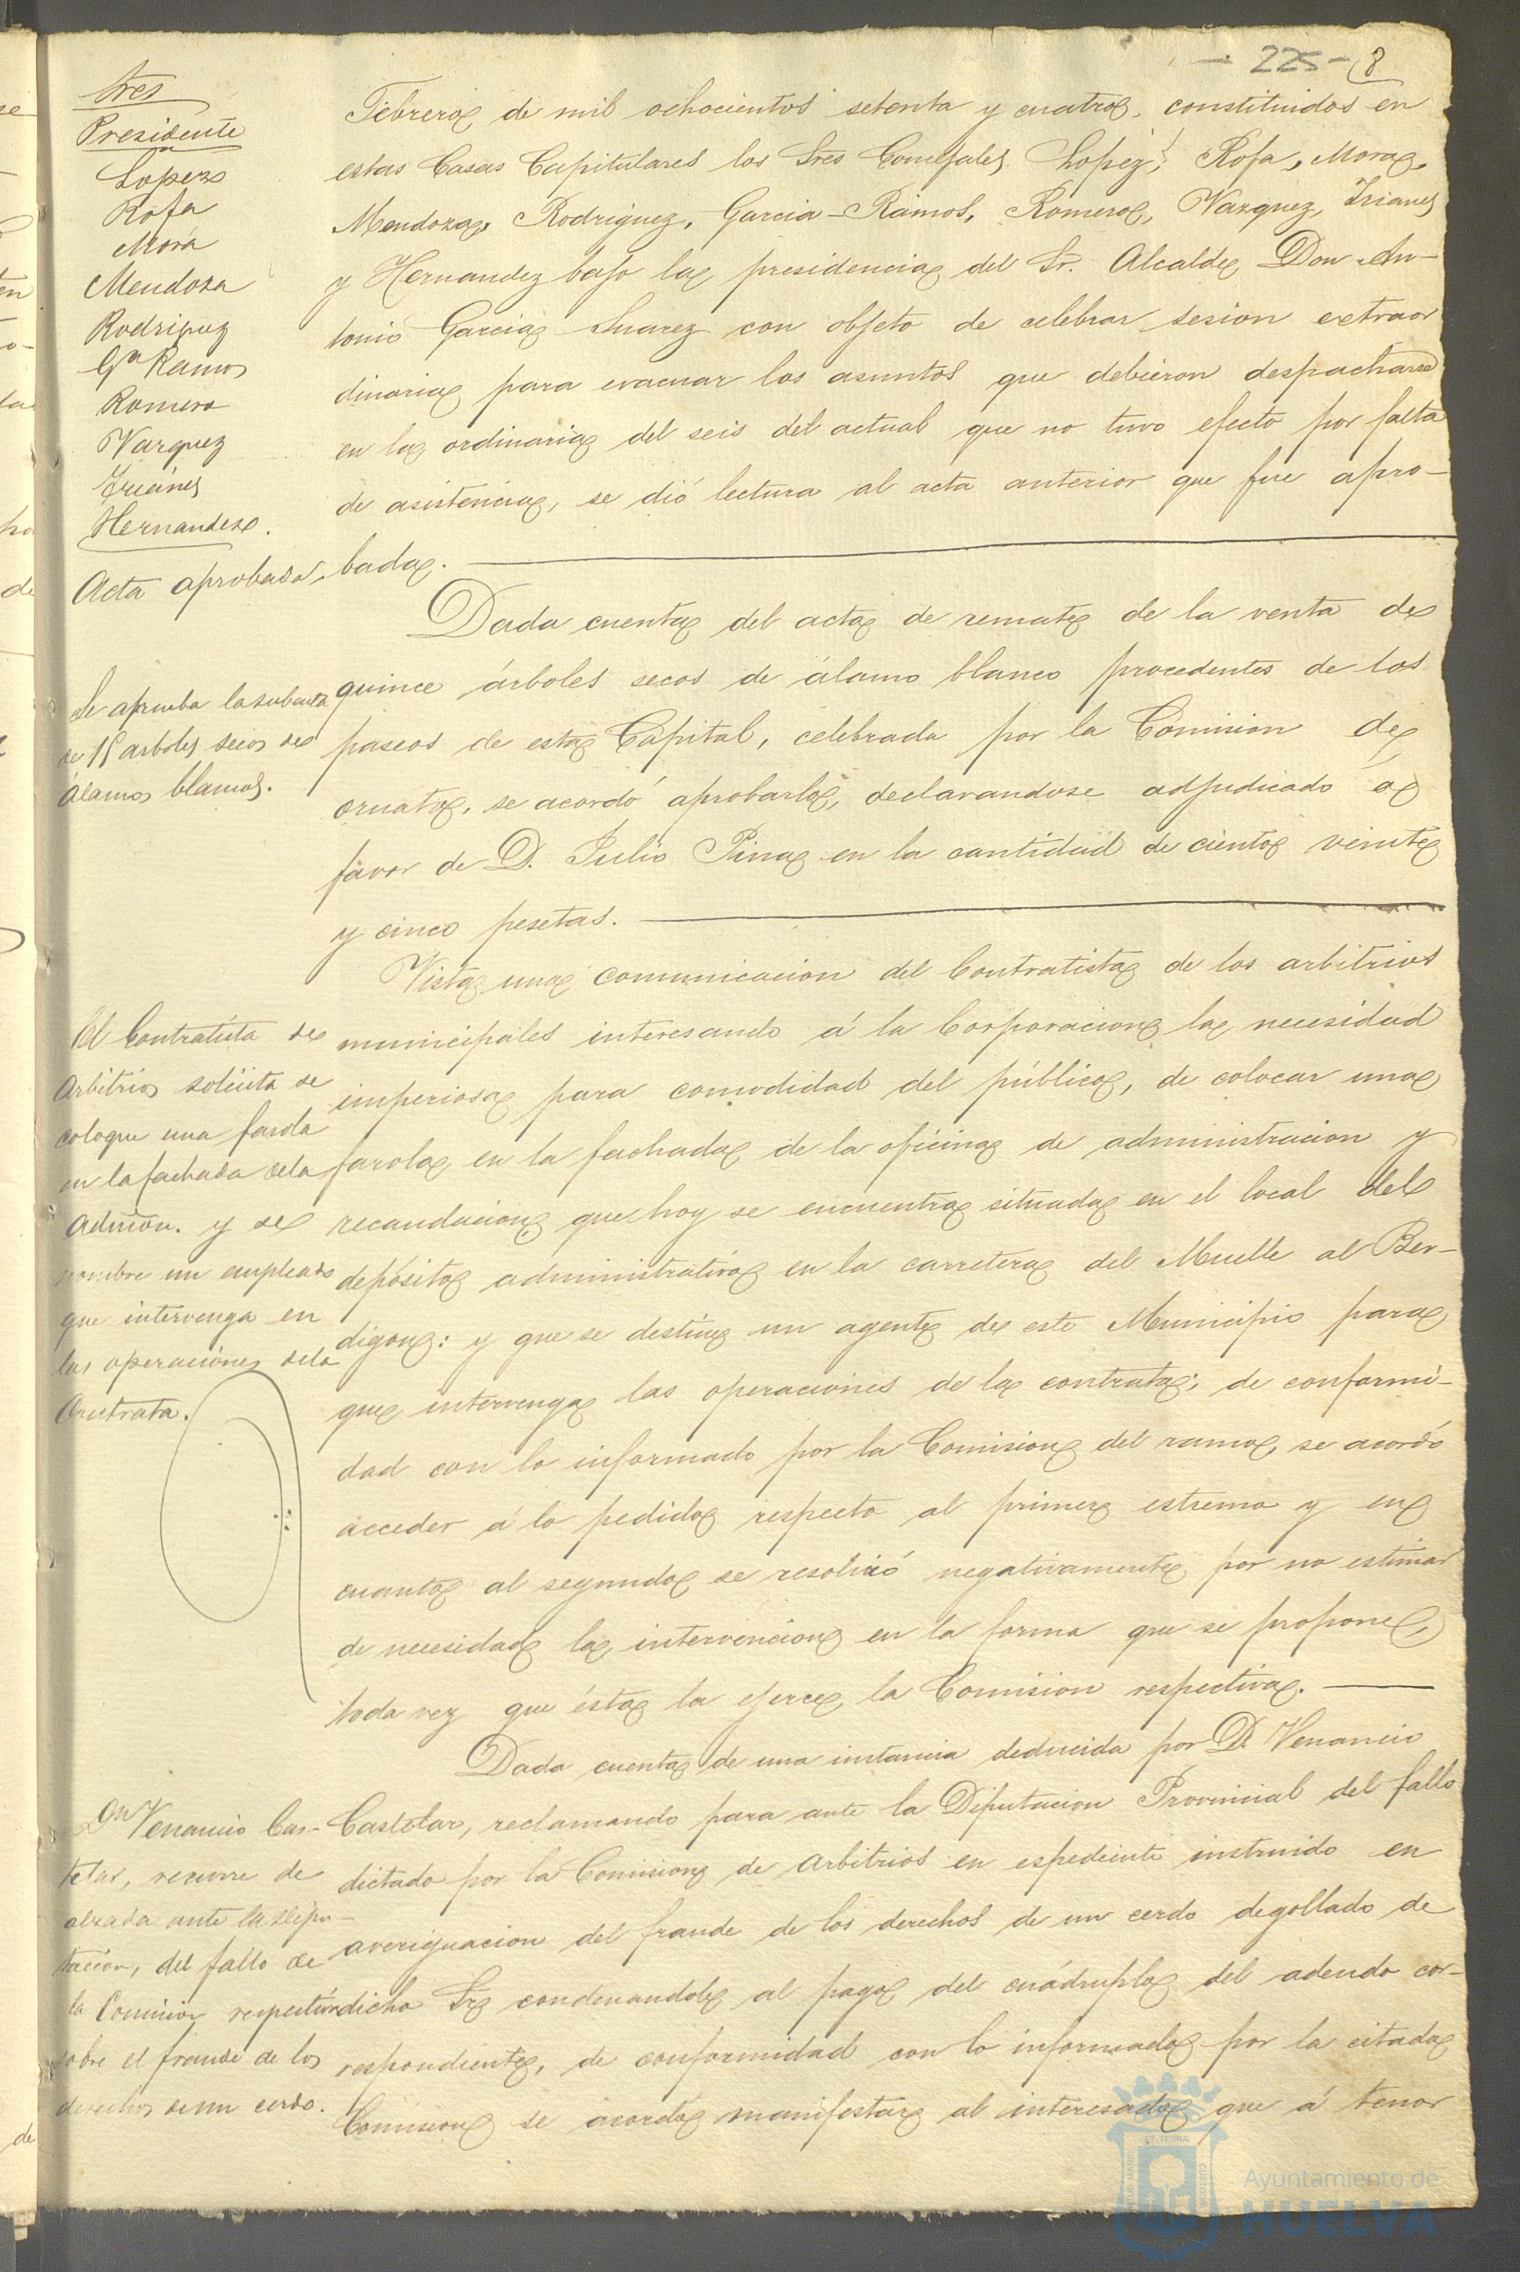 - 225 - 8
Sres
Presidente
Lopez
Rofa
Mora
Mendoza
Rodriguez
Gª Ramos
Romero
Vazquez
Trianes
Hernandez.
Febrero de mil ochocientos setenta y cuatro, constituidos en
estas Casas Capitulares los Sres Concejales Lopez, Rofa, Mora,
Mendoza, Rodriguez, Garcia-Ramos, Romero, Vazquez, Trianes
y Hernandez bajo la presidencia del Sr. Alcalde Don An-
tonio Garcia Suarez con objeto de celebrar sesion extraor
dinaria para evacuar los asuntos que debieron despacharse
en la ordinaria del seis del actual que no tuvo efecto por falta
de asistencia, se dió lectura al acta anterior que fue apro-
bada.
Acta aprobada.
Dada cuenta del acta de remate de la venta de
quince árboles secos de álamo blanco procedentes de los
paseos de esta Capital, celebrada por la Comision de
ornato, se acordó aprobarlo, declarandose adjudicado á
favor de D. Julio Pina en la cantidad de ciento veinte
y cinco pesetas.
Se aprueba la subasta
de 15 arboles secos de
álamos blancos.
Vista una comunicacion del Contratista de los arbitrios
municipales interesando á la Corporacion la necesidad
imperiosa para comodidad del público, de colocar una
farola en la fachada de la oficina de administracion y
recaudacion que hoy se encuentra situada en el local del
depósito administrativo en la carretera del Muelle al Ber-
digon: y que se destine un agente de este Municipio para
que intervenga las operaciones de la contrata; de conformi-
dad con lo informado por la Comision del ramo, se acordó
acceder á lo pedido respecto al primer estremo y en
cuanto al segundo se resolvió negativamente por no estimar
de necesidad la intervencion en la forma que se propone,
toda vez que ésta la ejerce la Comision respectiva.
El Contratista de
Arbitrios solicita se
coloque una farola
en la fachada de la
Admon. y se
nombre un empleado
que intervenga en
las operaciones de la
Contrata.
Dada cuenta de una instancia deducida por D. Venancio
Castelar, reclamando para ante la Diputacion Provincial del fallo
dictado por la Comision de Arbitrios en espediente instruido en
averiguacion del fraude de los derechos de un cerdo degollado de
dicho Sr condenandole al pago del cuádruplo del adeudo cor-
respondiente, de conformidad con lo informado por la citada
Comision se acordó manifestar al interesado que á tenor
Dn Venancio Cas-
telar, recurre de
alzada ante la Dipu-
tación, del fallo de
la Comision respectiva
sobre el fraude de los
derechos de un cerdo.
Ayuntamiento de
HUELVA